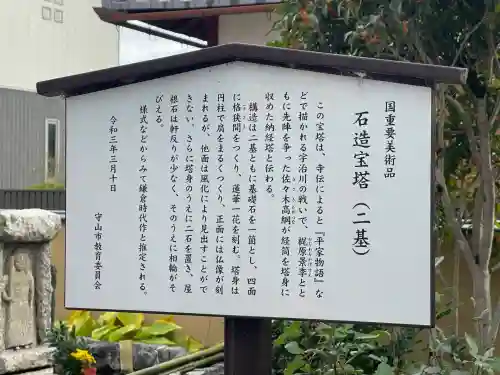 国重要美術品
石造宝塔（二基）
この宝塔は、寺伝によると『平家物語』な
どで描かれる宇治川の戦いで、梶原景季とと
もに先陣を争った佐々木高綱が経筒を塔身に
収めた納経塔と伝わる。
構造は二基ともに基礎石を一箇とし、四面
に格狭間をつくり、蓮華一花を刻む。塔身は
円柱で肩をまるくつくり、正面には仏像が刻
まれるが、他面は風化により見出すことがで
きない。さらに塔身のうえに二石を置き、屋
根石は軒反りが少なく、そのうえに相輪がそ
びえる。
様式などからみて鎌倉時代作と推定される。
令和三年三月十日
守山市教育委員会